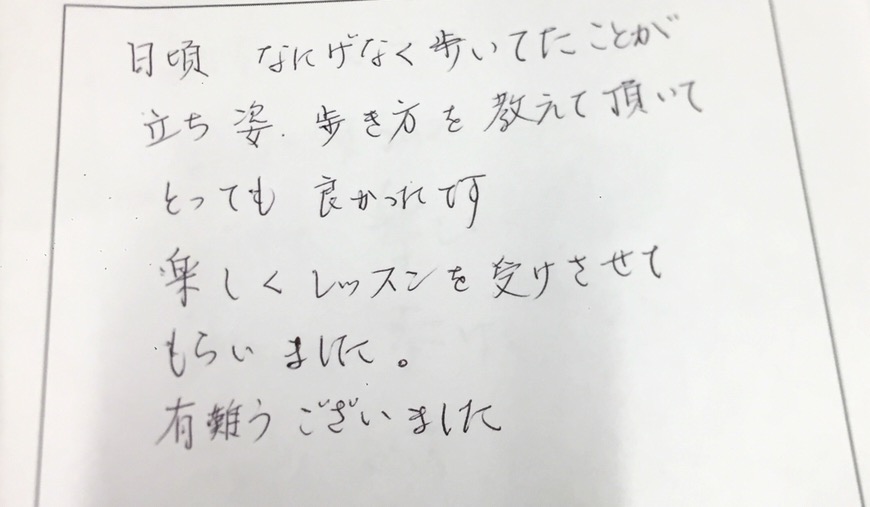 日頃 なにげなく歩いてたことが
立ち姿.歩き方を教えて頂いて
とっても 良かったです
楽しくレッスンを受けさせて
もらいました。
有難うございました